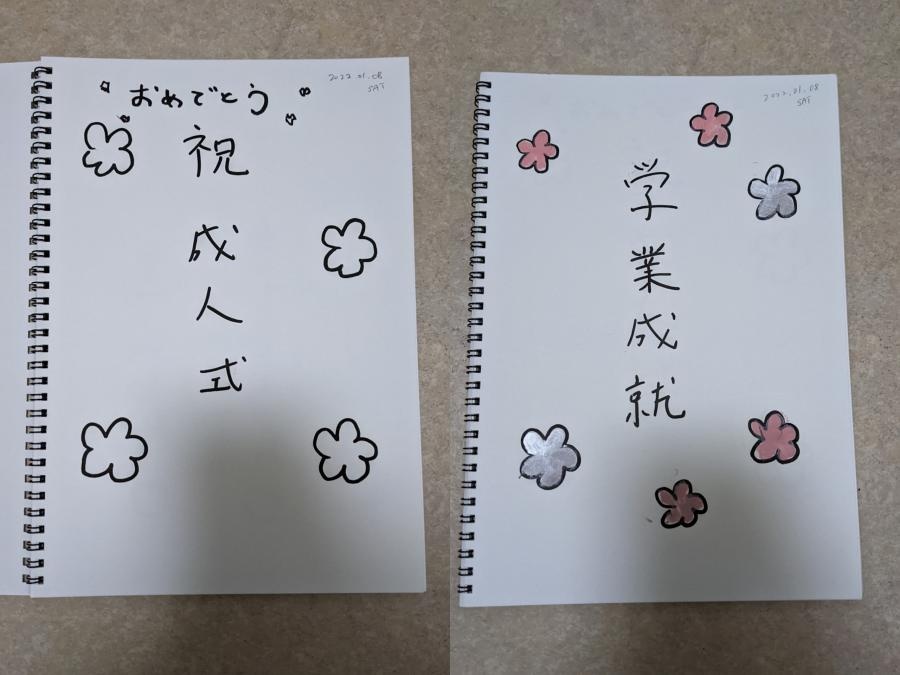 2022.01.08
SAT
おめでとう
祝
成
人
式
2022.01.08
SAT
学
業
成
就